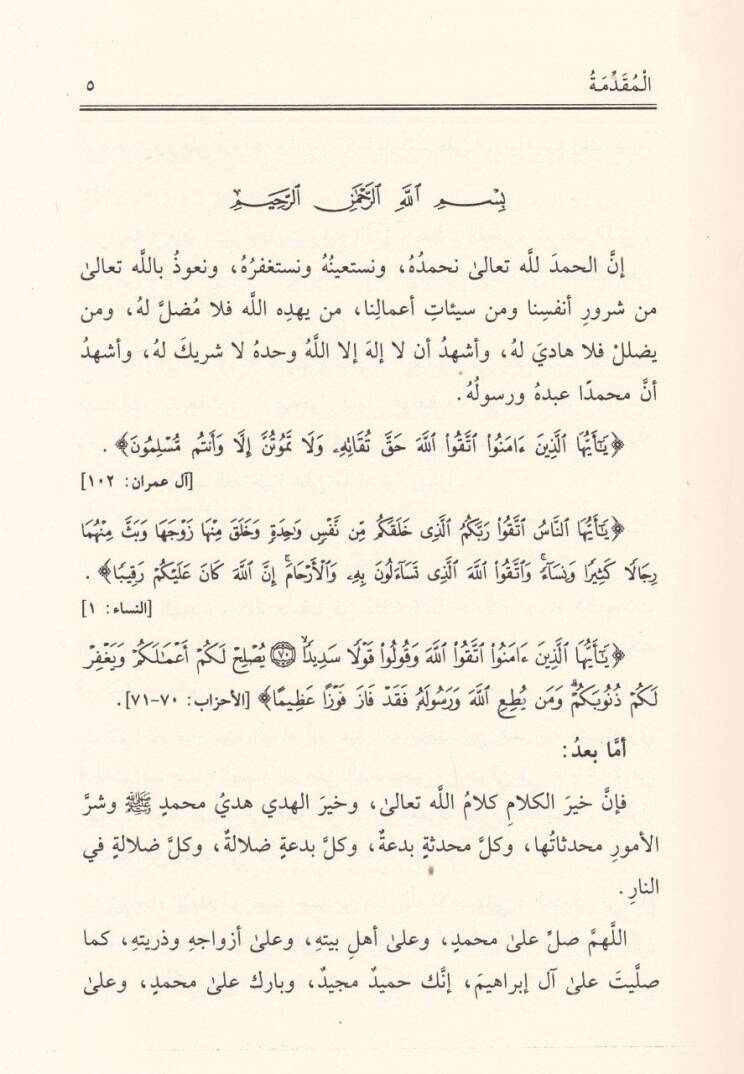 الْمُقَدِّمَةُ ٥
بِسْمِ اللَّهِ الرَّحْمَٰنِ الرَّحِيمِ
إنَّ الحمدَ للَّه تعالىٰ نحمدُهُ، ونستعينُهُ ونستغفرُهُ، ونعوذُ باللَّه تعالىٰ
من شرورِ أنفسِنا ومن سيئاتِ أعمالِنا، من يهدِه اللَّه فلا مُضلَّ لهُ، ومن
يضللْ فلا هاديَ لهُ، وأشهدُ أن لا إلهَ إلا اللَّهُ وحدهُ لا شريكَ لهُ، وأشهدُ
أنَّ محمدًا عبدهُ ورسولُهُ.
﴿يَٰٓأَيُّهَا ٱلَّذِينَ ءَامَنُوا۟ ٱتَّقُوا۟ ٱللَّهَ حَقَّ تُقَاتِهِۦ وَلَا تَمُوتُنَّ إِلَّا وَأَنتُم مُّسْلِمُونَ﴾ .
[آل عمران: ١٠٢]
﴿يَٰٓأَيُّهَا ٱلنَّاسُ ٱتَّقُوا۟ رَبَّكُمُ ٱلَّذِى خَلَقَكُم مِّن نَّفْسٍ وَٰحِدَةٍ وَخَلَقَ مِنْهَا زَوْجَهَا وَبَثَّ مِنْهُمَا
رِجَالًا كَثِيرًا وَنِسَآءً ۚ وَٱتَّقُوا۟ ٱللَّهَ ٱلَّذِى تَسَآءَلُونَ بِهِۦ وَٱلْأَرْحَامَ ۚ إِنَّ ٱللَّهَ كَانَ عَلَيْكُمْ رَقِيبًا﴾ .
[النساء: ١]
﴿يَٰٓأَيُّهَا ٱلَّذِينَ ءَامَنُوا۟ ٱتَّقُوا۟ ٱللَّهَ وَقُولُوا۟ قَوْلًا سَدِيدًا ۝٧٠ يُصْلِحْ لَكُمْ أَعْمَٰلَكُمْ وَيَغْفِرْ
لَكُمْ ذُنُوبَكُمْ ۗ وَمَن يُطِعِ ٱللَّهَ وَرَسُولَهُۥ فَقَدْ فَازَ فَوْزًا عَظِيمًا﴾ [الأحزاب: ٧٠-٧١].
أمَّا بعدُ:
فإنَّ خيرَ الكلامِ كلامُ اللَّه تعالىٰ، وخيرَ الهدي هديُ محمدٍ ﷺ وشرَّ
الأمورِ محدثاتُها، وكلَّ محدثةٍ بدعةٌ، وكلَّ بدعةٍ ضلالةٌ، وكلَّ ضلالةٍ في
النارِ.
اللَّهمَّ صلِّ علىٰ محمدٍ، وعلىٰ أهلِ بيتهِ، وعلىٰ أزواجهِ وذريتهِ، كما
صلَّيتَ علىٰ آل إبراهيمَ، إنَّك حميدٌ مجيدٌ، وبارك علىٰ محمدٍ، وعلىٰ